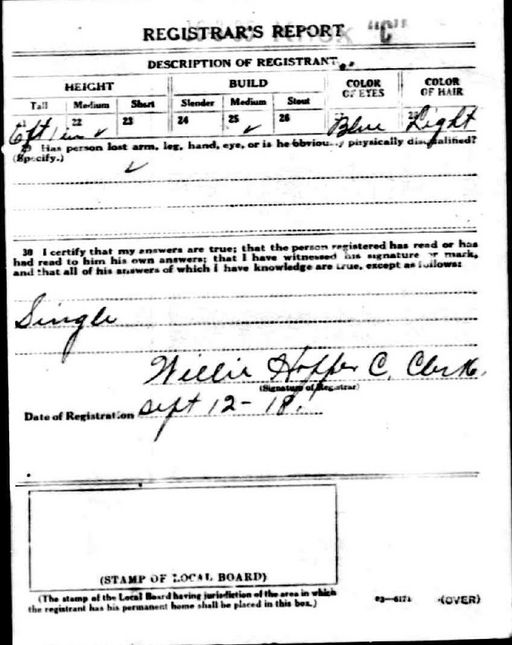 REGISTRAR'S REPORT "C"
DESCRIPTION OF REGISTRANT
HEIGHT BUILD COLOR OF EYES COLOR OF HAIR
Tall Medium Short Slender Medium Stout
22 23 24 25 26
6 ft 1 in ✓ ✓ Blue Light
29 Has person lost arm, leg, hand, eye, or is he obviously physically disqualified?
(Specify.) ✓
30 I certify that my answers are true; that the person registered has read or has
had read to him his own answers; that I have witnessed his signature or mark,
and that all of his answers of which I have knowledge are true, except as follows:
Single
Willie Hopper C. Clerk.
(Signature of Registrar)
Date of Registration Sept 12-18.
(STAMP OF LOCAL BOARD)
(The stamp of the Local Board having jurisdiction of the area in which
the registrant has his permanent home shall be placed in this box.)
03-6171 (OVER)